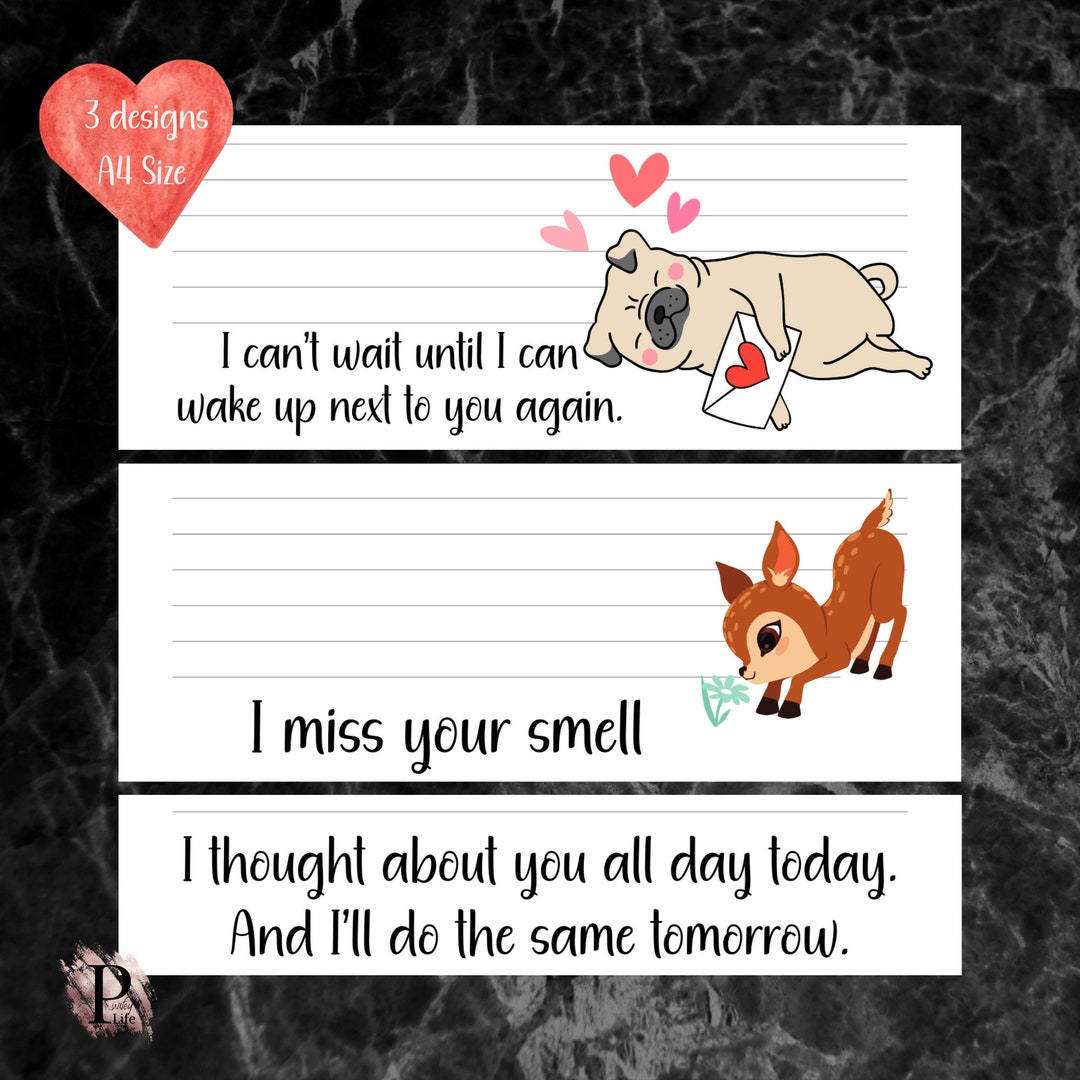 3 designs
A4 Size
I can't wait until I can
wake up next to you again.
I miss your smell
I thought about you all day today.
And I'll do the same tomorrow.
P
Life